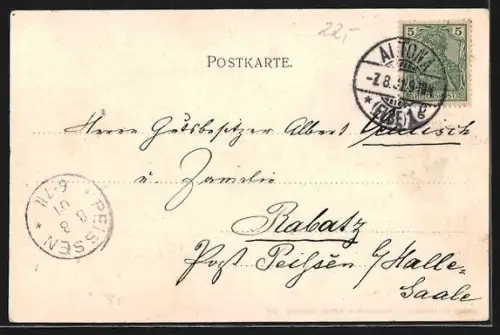 22,-
5 5
POSTKARTE.
ALTONA
-7.8.01.9-10N
* (ELBE) 1 g
Herrn Gutsbesitzer Albert
u. Familie
Rabatz
Post Peißen b/Halle-
Saale
* PEISSEN *
8 8
01
6-7N